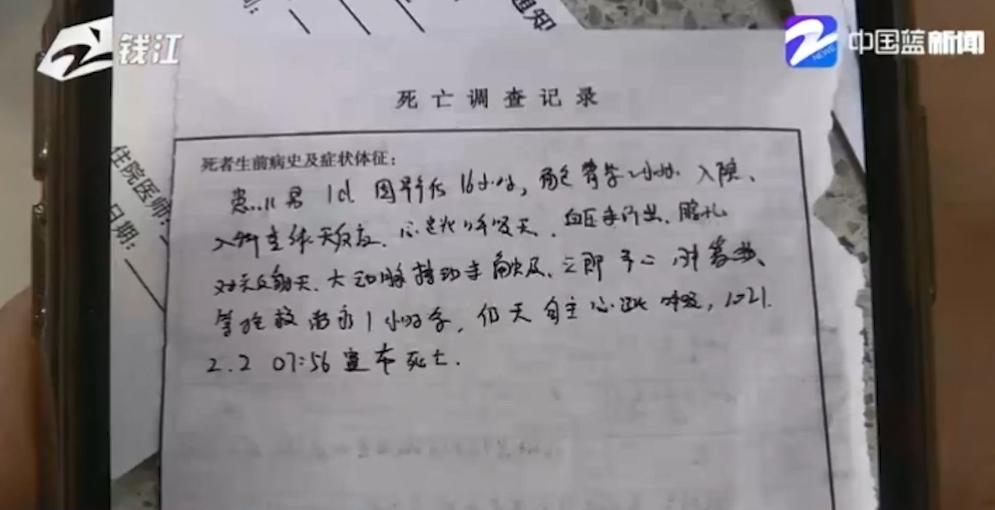 钱江
中国蓝新闻
NEWS
通知
死亡调查记录
住院医师:
日期:
死者生前病史及症状体征:
患 男 1d 因 16小时, 小时 入院.
入 无反应. 心跳呼吸无. 血压 瞳孔
对光反射无. 大动脉搏动未触及. 立即予心肺复苏、
等抢救 1小时 , 仍无自主心跳呼吸, 2021.
2.2 07:56 宣布死亡.